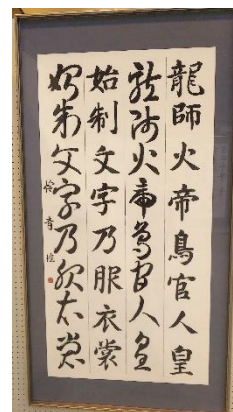 龍師火帝鳥官人皇
龍師火帝鳥官人皇
始制文字乃服衣裳
始制文字乃服衣裳